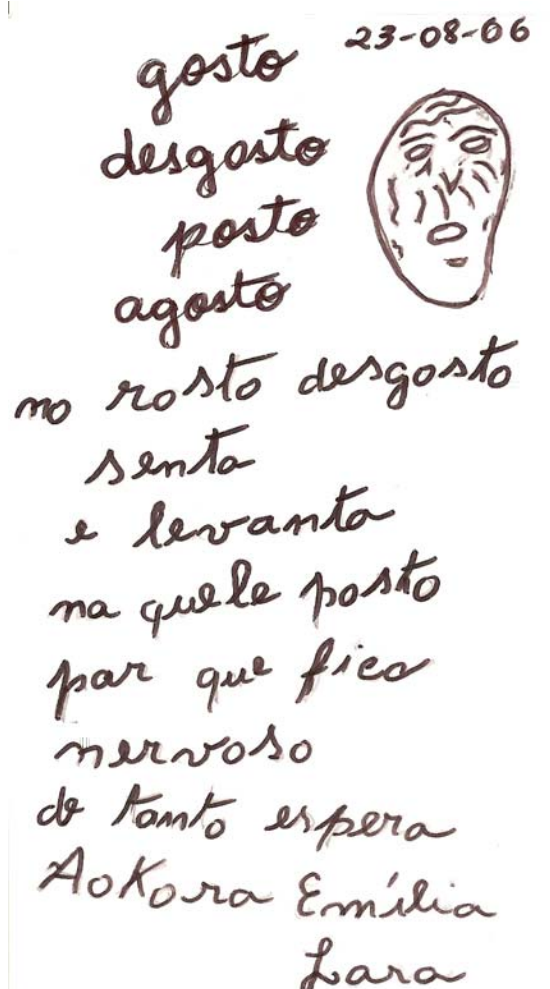 23-08-06
gosto
desgosto
posto
agosto
no rosto desgosto
senta
e levanta
na quele posto
par que fica
nervoso
de tanto espera
AoKora Emília
Lara